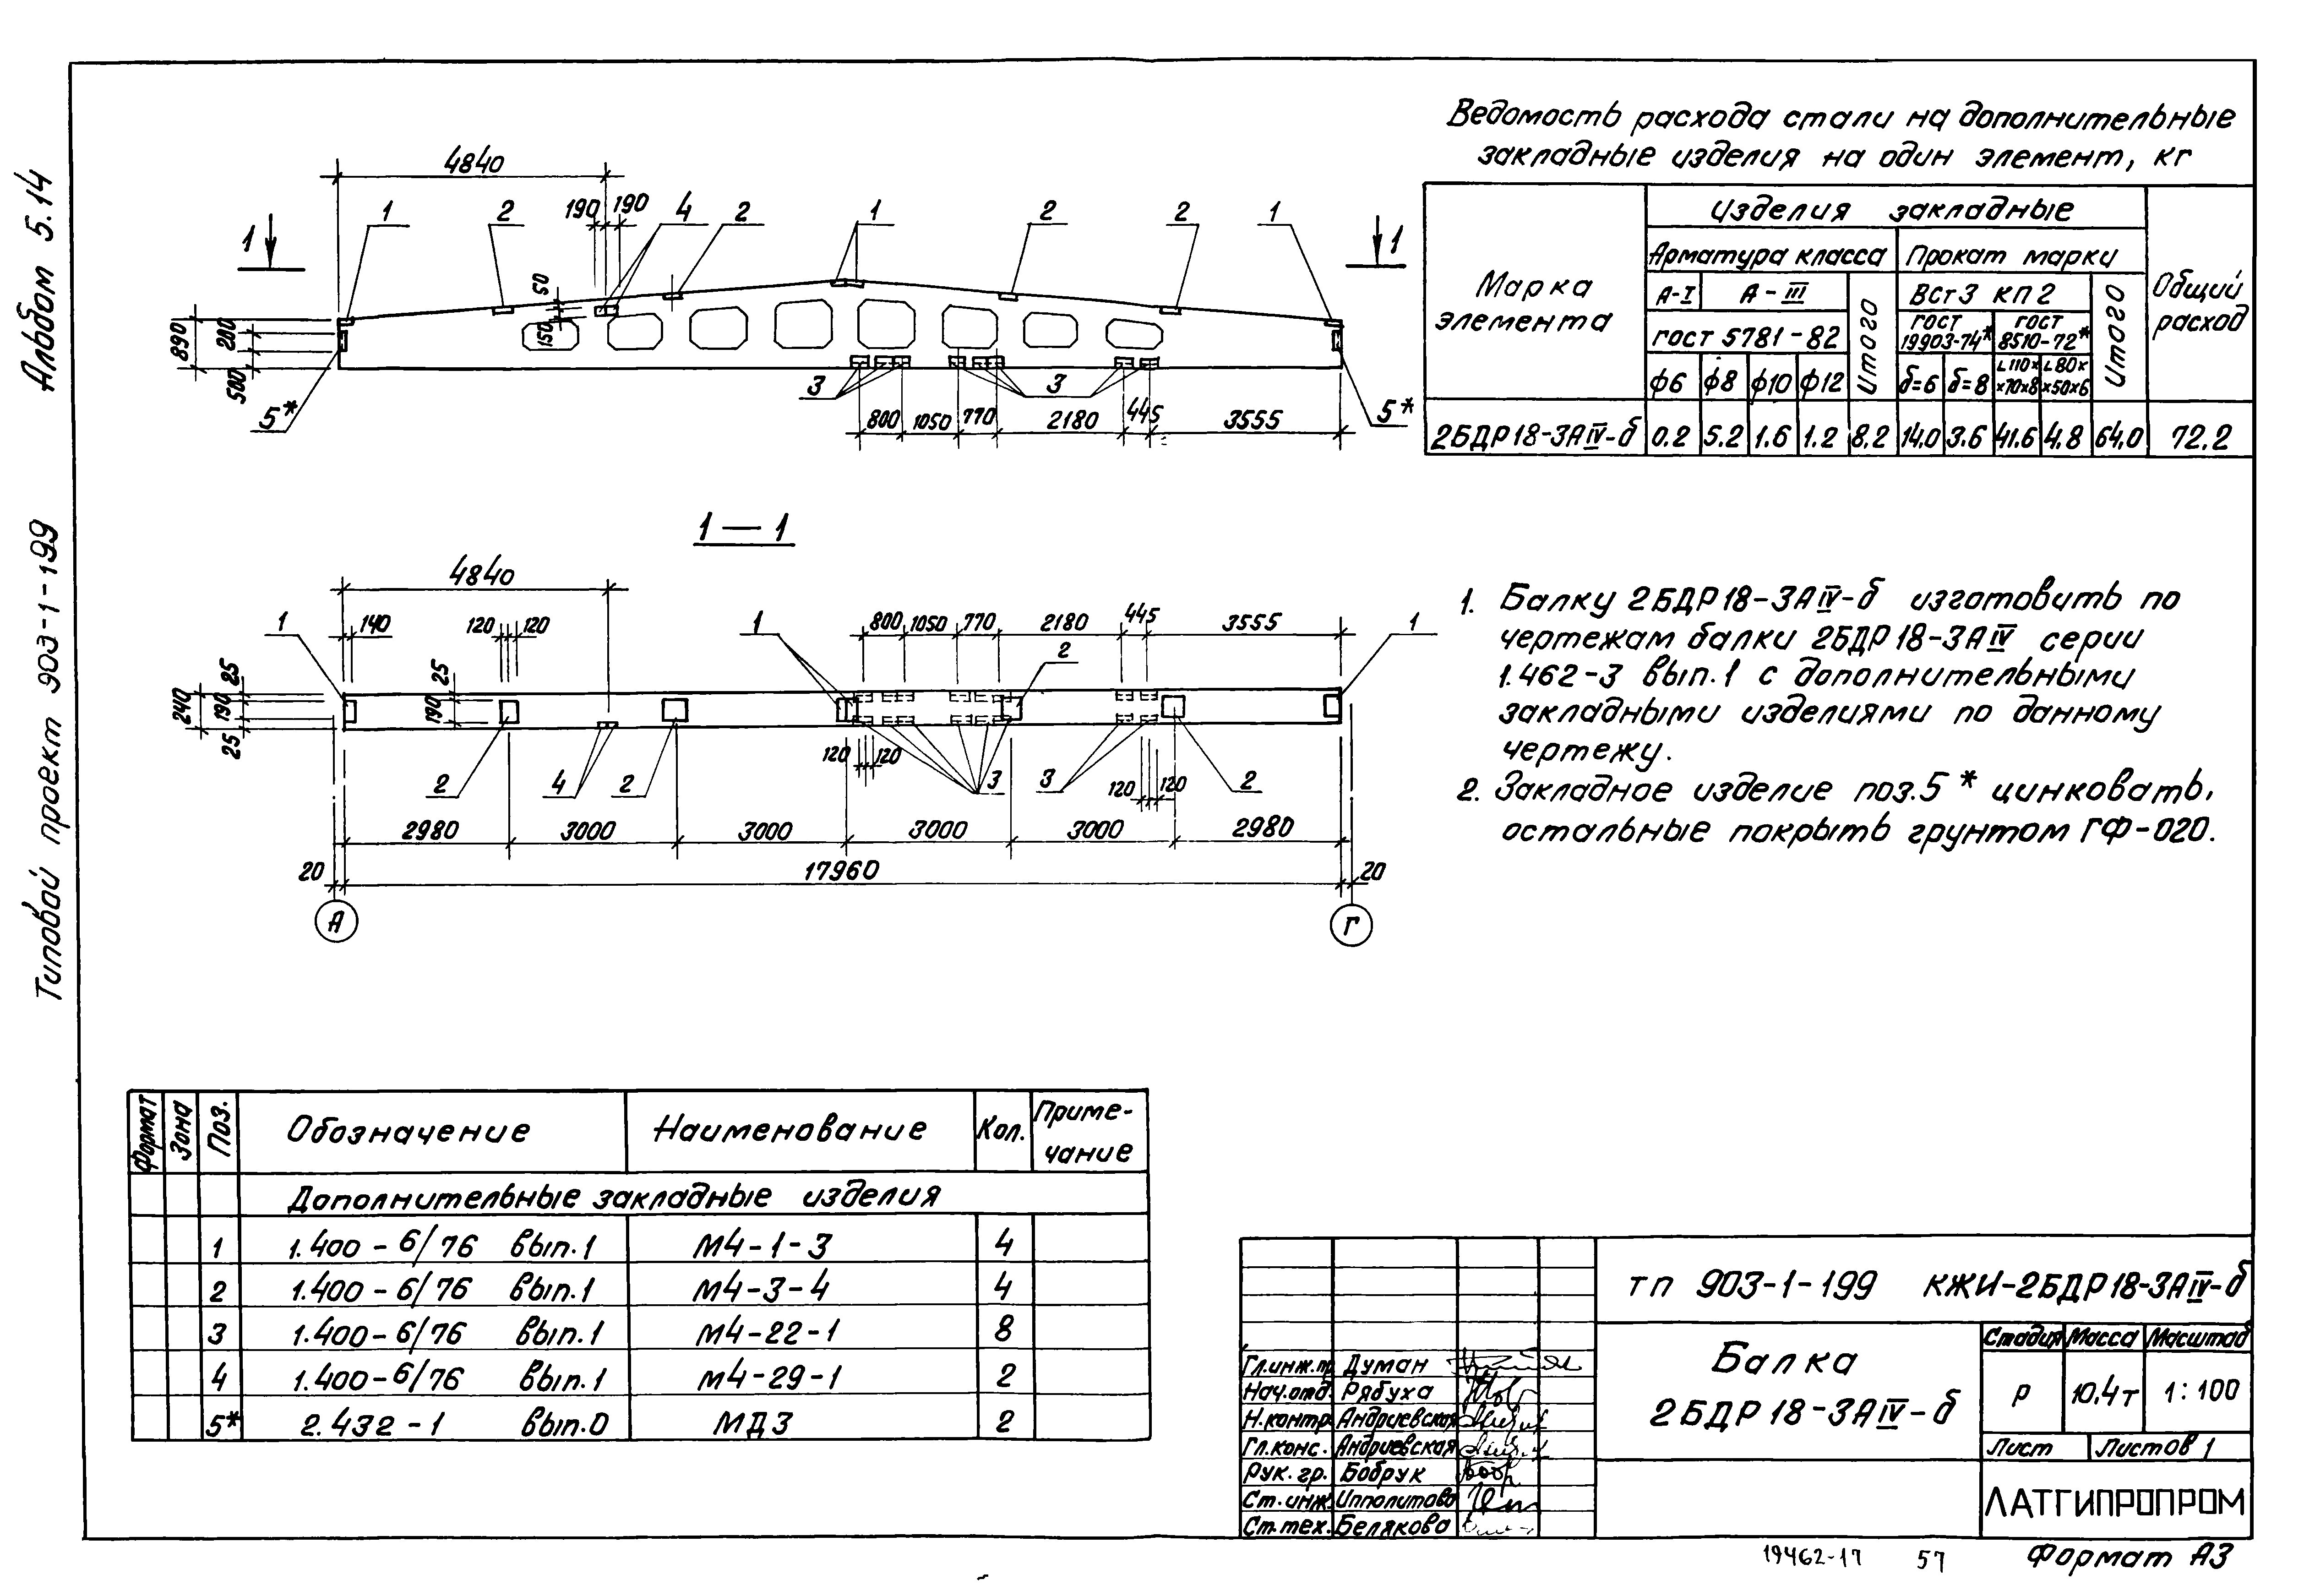 Альбом 5.14
Типовой проект 903-1-199
4840
190
190
1
2
4
2
1
2
2
1
1
1
50
150
890
200
500
5*
3
3
5*
800
1050
770
2180
445
3555
1—1
4840
1
140
120
120
1
800
1050
770
2180
445
3555
1
2
25
190
25
240
25
190
2
4
2
120
120
3
3
120
120
2
2980
3000
3000
3000
3000
2980
20
17960
20
А
Г
Ведомость расхода стали на дополнительные
закладные изделия на один элемент, кг
Марка
элемента
Изделия закладные
Общий
расход
Арматура класса
Прокат марки
А-I
А-III
Итого
ВСт3 КП2
Итого
ГОСТ 5781-82
ГОСТ
19903-74*
ГОСТ
8510-72*
ф6
ф8
ф10
ф12
δ=6
δ=8
∟110×
×70×8
∟80×
×50×6
2БДР18-3АIV-б 0.2 5.2 1.6 1.2 8.2 14.0 3.6 41.6 4.8 64.0 72.2
1. Балку 2БДР18-3АIV-б изготовить по
чертежам балки 2БДР18-3АIV серии
1.462-3 вып.1 с дополнительными
закладными изделиями по данному
чертежу.
2. Закладное изделие поз.5* цинковать,
остальные покрыть грунтом ГФ-020.
Формат
Зона
Поз.
Обозначение
Наименование
Кол.
Приме-
чание
Дополнительные закладные изделия
1 1.400-6/76 вып.1 М4-1-3 4
2 1.400-6/76 вып.1 М4-3-4 4
3 1.400-6/76 вып.1 М4-22-1 8
4 1.400-6/76 вып.1 М4-29-1 2
5* 2.432-1 вып.0 МД3 2
ТП 903-1-199 КЖИ-2БДР18-3АIV-б
Балка
2БДР18-3АIV-б
Стадия Масса Масштаб
Р 10.4т 1:100
Лист
Листов 1
ЛАТГИПРОПРОМ
Гл.инж.п. Думан
Нач.отд. Рябуха
Н.контр. Андриевская
Гл.конс. Андриевская
Рук. гр. Бобрук
Ст.инж. Ипполитова
Ст.тех. Белякова
19462-17 57
Формат А3